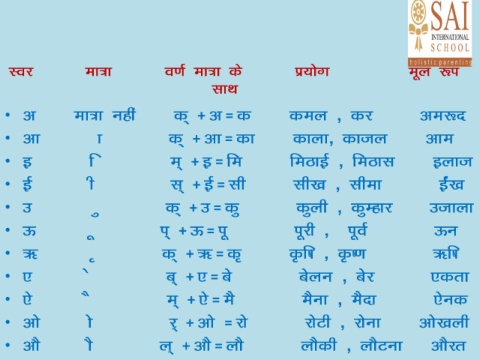 SAI
INTERNATIONAL
SCHOOL
holistic parenting
स्वर मात्रा वर्ण मात्रा के साथ प्रयोग मूल रूप
• अ मात्रा नहीं क् + अ = क कमल , कर अमरूद
• आ ा क् + आ = का काला, काजल आम
• इ ि म् + इ = मि मिठाई , मिठास इलाज
• ई ी स् + ई = सी सीख , सीमा ईंख
• उ ु क् + उ = कु कुली , कुम्हार उजाला
• ऊ ू प् + ऊ = पू पूरी , पूर्व ऊन
• ऋ ृ क् + ऋ = कृ कृषि , कृष्ण ऋषि
• ए े ब् + ए = बे बेलन , बेर एकता
• ऐ ै म् + ऐ = मै मैना , मैदा ऐनक
• ओ ो र् + ओ = रो रोटी , रोना ओखली
• औ ौ ल् + औ = लौ लौकी , लौटना औरत